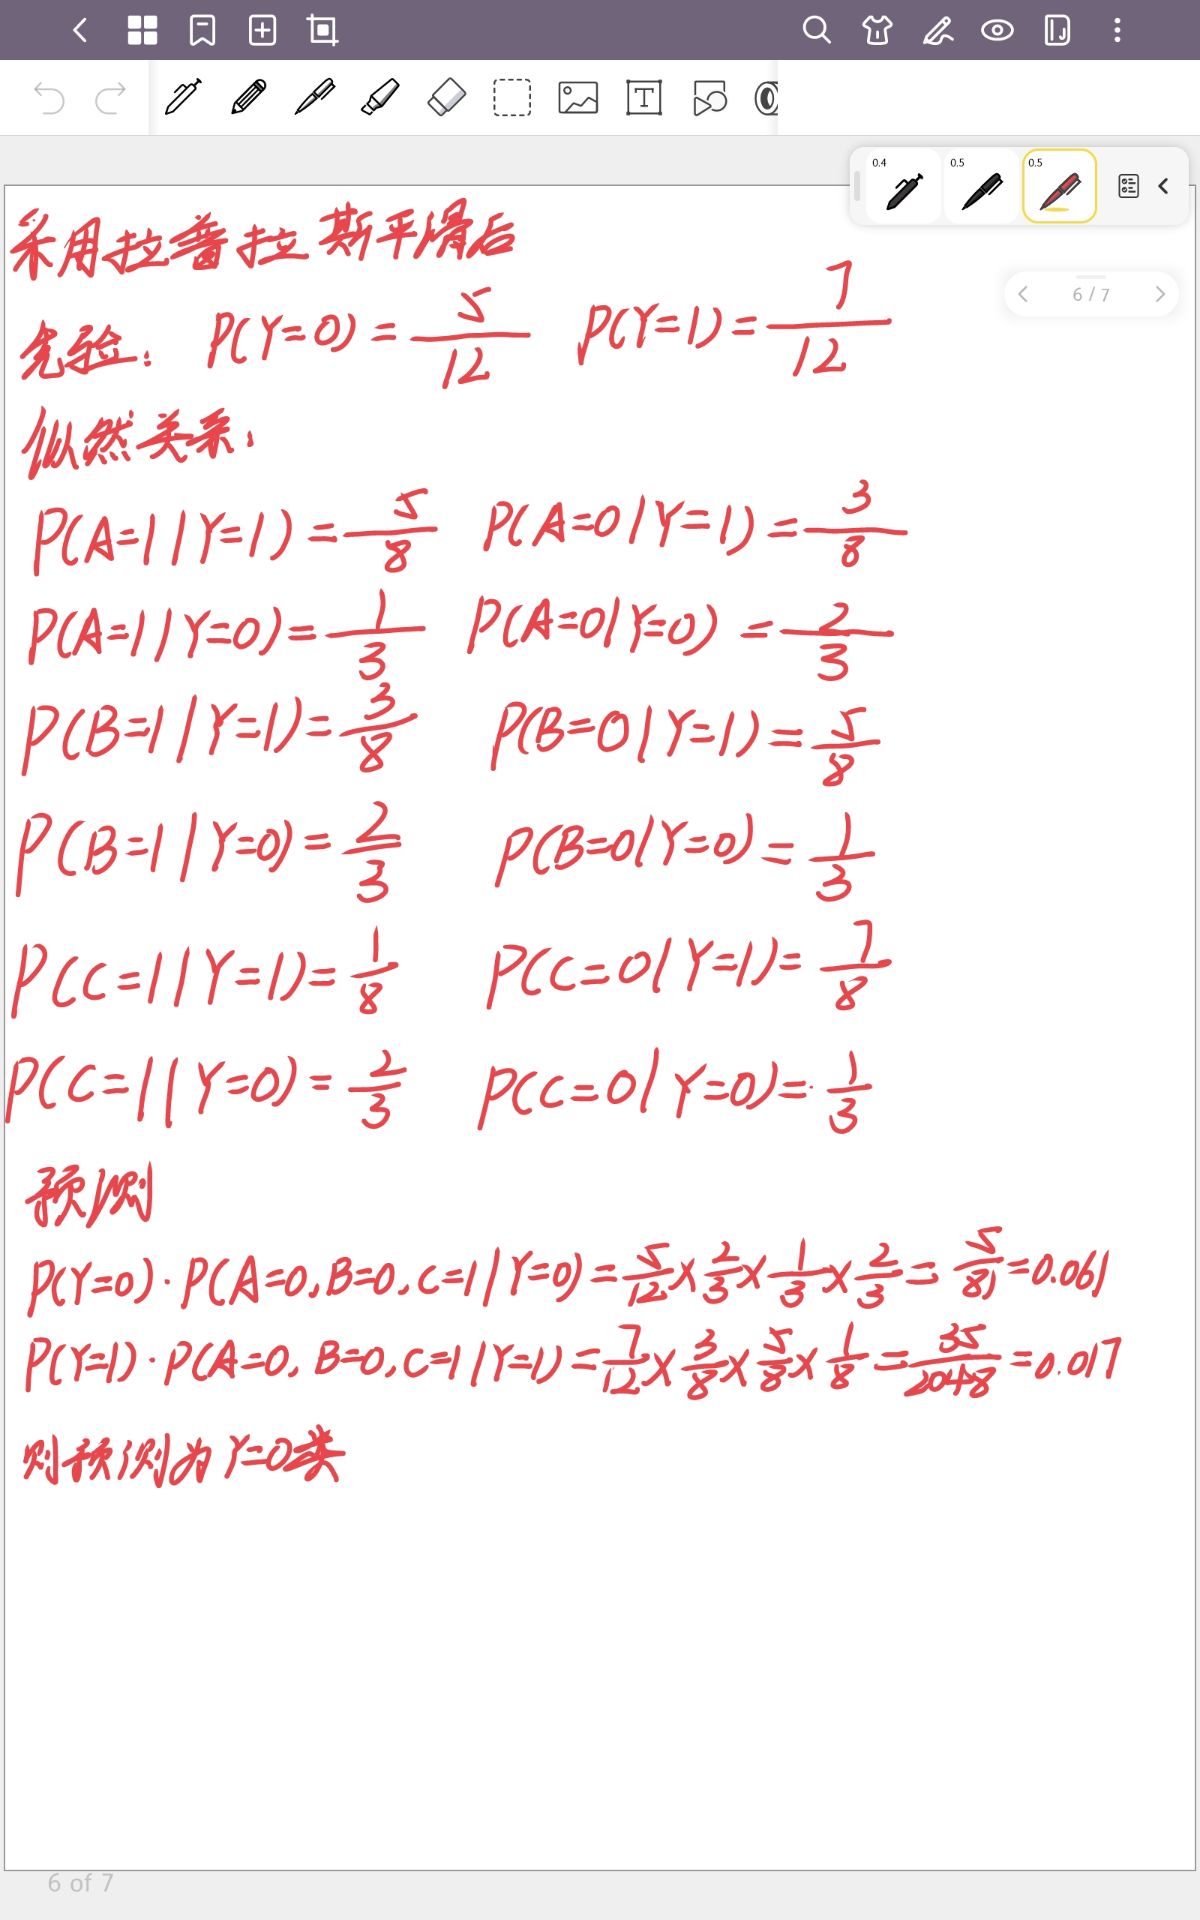 0.4 0.5 0.5
采用拉普拉斯平滑后
6 / 7
先验: P(Y=0) = 5/12 P(Y=1) = 7/12
似然关系:
P(A=1|Y=1) = 5/8 P(A=0|Y=1) = 3/8
P(A=1|Y=0) = 1/3 P(A=0|Y=0) = 2/3
P(B=1|Y=1) = 3/8 P(B=0|Y=1) = 5/8
P(B=1|Y=0) = 2/3 P(B=0|Y=0) = 1/3
P(C=1|Y=1) = 1/8 P(C=0|Y=1) = 7/8
P(C=1|Y=0) = 2/3 P(C=0|Y=0) = 1/3
预测
P(Y=0)·P(A=0,B=0,C=1|Y=0) = 5/12 × 2/3 × 1/3 × 2/3 = 5/81 = 0.061
P(Y=1)·P(A=0,B=0,C=1|Y=1) = 7/12 × 3/8 × 5/8 × 1/8 = 35/2048 = 0.017
则预测为Y=0类
6 of 7